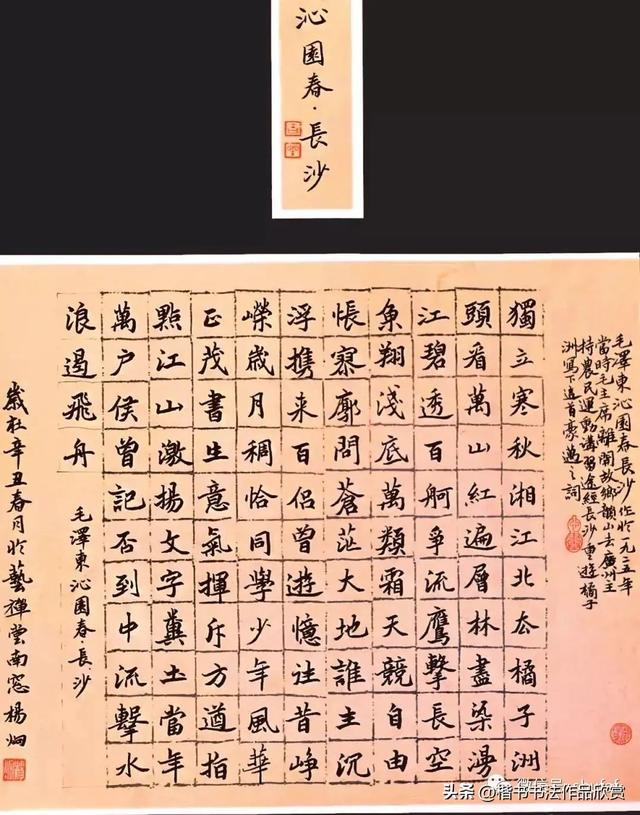 沁園春·長沙
毛澤東沁園春長沙作於一九二五年
當時毛主席離開故鄉韶山去廣州主
持農民運動講習途經長沙重遊橘子
洲寫下這首豪邁之詞
獨立寒秋湘江北去橘子洲
頭看萬山紅遍層林盡染漫
江碧透百舸爭流鷹擊長空
魚翔淺底萬類霜天競自由
悵寥廓問蒼茫大地誰主沉
浮携来百侶曾遊憶往昔崢
嶸歲月稠恰同學少年風華
正茂書生意氣揮斥方遒指
點江山激揚文字糞土當年
萬户侯曾記否到中流擊水
浪遏飛舟
毛澤東沁園春·長沙
歲在辛丑春月於藝禪堂南窓楊炯
微信号
头条 @楷书书法作品欣赏